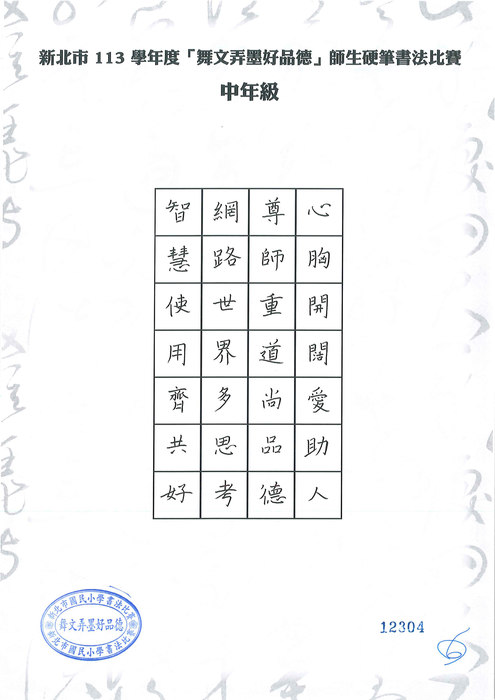 新北市 113 學年度「舞文弄墨好品德」師生硬筆書法比賽
中年級
心胸開闊愛助人
尊師重道尚品德
網路世界多思考
智慧使用齊共好
新北市國民小學書法比賽
舞文弄墨好品德
新北市國民小學書法比賽
12304